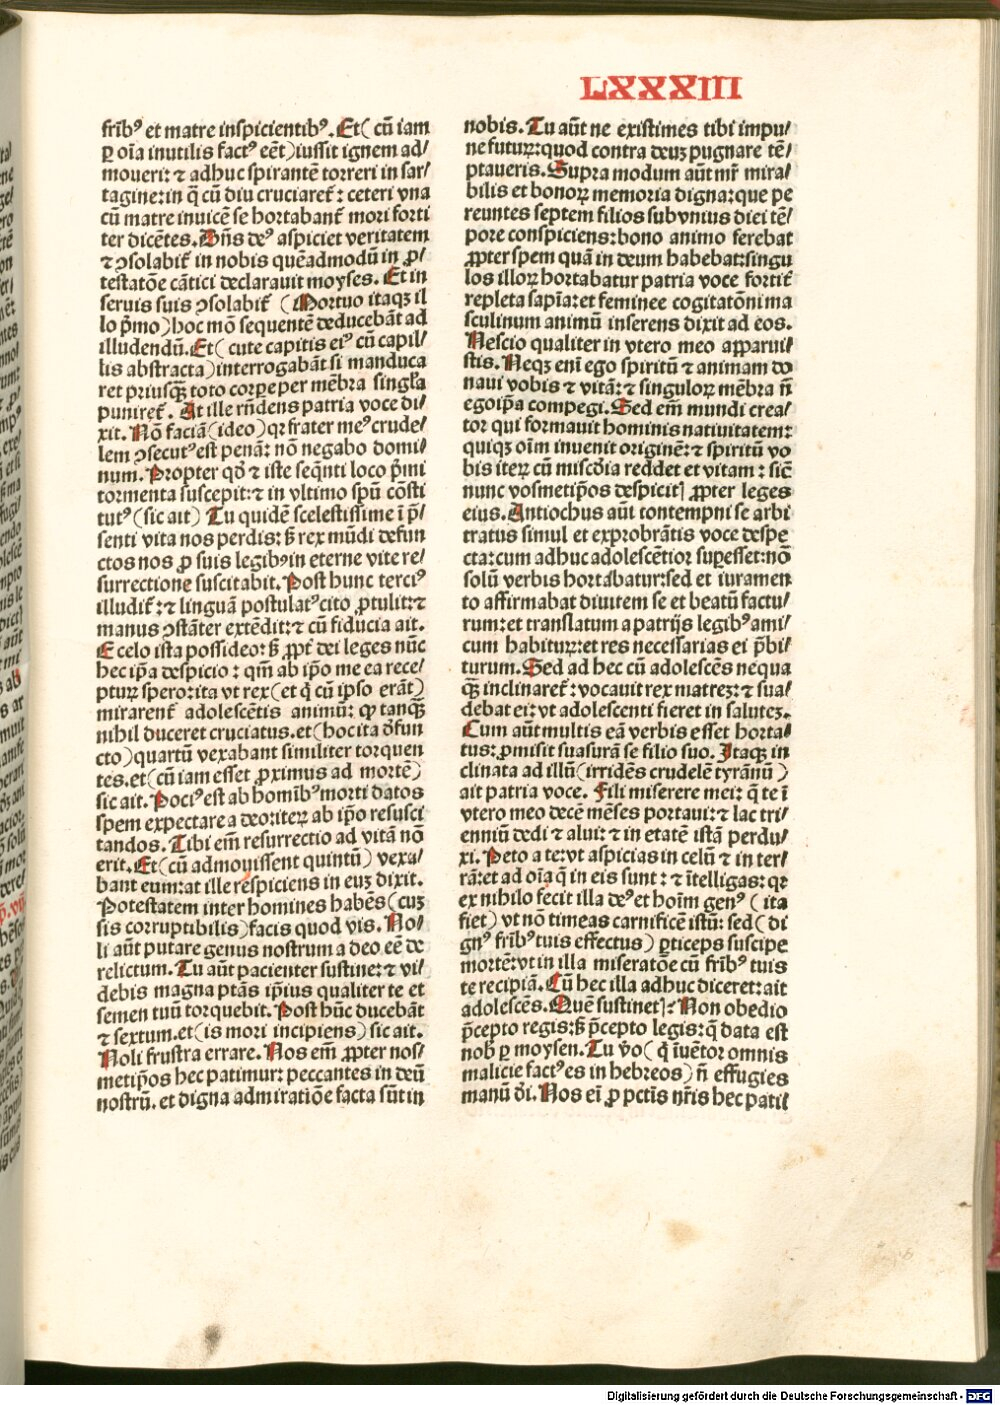 LXXXIII
frīb⁹ et matre inspicientib⁹. Et (cū iam
ꝑ oīa inutilis fact⁹ eēt) iussit ignem ad⸗
moueri: ⁊ adhuc spirantē torreri in sar⸗
tagine: in q̄ cū diu cruciaret̄: ceteri vna
cū matre inuicē se hortabant̄ mori forti
ter dicētes. Dn̄s de⁹ aspiciet veritatem
⁊ ꝯsolabit̄ in nobis quēadmodū in ꝓ⸗
testatōe cātici declarauit moyses. Et in
seruis suis ꝯsolabit̄ (Mortuo itaqꝫ il
lo p̄mo) hoc mō sequentē deducebāt ad
illudendū. Et (cute capitis ei⁹ cū capil⸗
lis abstracta) interrogabāt si manduca
ret priusqꝫ̄ toto corpe per mēbra singl̄a
puniret̄. At ille rn̄dens patria voce di⸗
xit. Nō faciā (ideo) qꝛ frater me⁹ crude⸗
lem ꝯsecut⁹ est penā: nō negabo domi⸗
num. Propter qd̄ ⁊ iste seq̄nti loco p̄mi
tormenta suscepit: ⁊ in vltimo spū cōsti
tut⁹ (sic ait) Tu quidē scelestissime ī p̄⸗
senti vita nos perdis: sꝫ rex mūdi defun
ctos nos ꝓ suis legib⁹ in eterne vite re⸗
surrectione suscitabit. Post hunc terci⁹
illudit̄: ⁊ linguā postulat⁹ cito ꝓtulit: ⁊
manus ꝯstāter extēdit: ⁊ cū fiducia ait.
E celo ista possideo: sꝫ ꝓpt̄ dei leges nūc
hec ip̄a despicio: qm̄ ab ip̄o me ea rece⸗
pturꝫ spero: ita vt rex (et q̄ cū ipso erāt)
mirarent̄ adolescētis animū: ꝙ tanqꝫ̄
nihil duceret cruciatus. et (hoc ita d̄fun
cto) quartū vexabant similiter torquen
tes. et (cū iam esset ꝓximus ad mortē)
sic ait. Poci⁹ est ab homīb⁹ morti datos
spem expectare a deo: iterꝫ ab ip̄o resusci
tandos. Tibi em̄ resurrectio ad vitā nō
erit. Et (cū admouissent quintū) vexa⸗
bant eum: at ille respiciens in euꝫ dixit.
Potestatem inter homines habēs (cuꝫ
sis corruptibilis) facis quod vis. No⸗
li aūt putare genus nostrum a deo eē de
relictum. Tu aūt pacienter sustine: ⁊ vi⸗
debis magna ptās ip̄ius qualiter te et
semen tuū torquebit. Post hūc ducebāt
⁊ sextum. et (is mori incipiens) sic ait.
Noli frustra errare. Nos em̄ ꝓpter nos⸗
metip̄os hec patimur: peccantes in deū
nostrū. et digna admiratiōe facta sūt in
nobis. Tu aūt ne existimes tibi impu⸗
ne futurꝫ: quod contra deuꝫ pugnare tē⸗
ptaueris. Supra modum aūt mr̄ mira⸗
bilis et bonoꝝ memoria digna: que pe
reuntes septem filios sub vnius diei tē⸗
pore conspiciens: bono animo ferebat
ꝓpter spem quā in deum habebat: singu
los illoꝝ hortabatur patria voce fortit̄
repleta sapīa: et feminee cogitatōni ma
sculinum animū inserens dixit ad eos.
Nescio qualiter in vtero meo apparui⸗
stis. Neqꝫ enī ego spiritū ⁊ animam do
naui vobis ⁊ vitā: ⁊ singuloꝝ mēbra n̄
egoip̄a compegi. Sed em̄ mundi crea⸗
tor qui formauit hominis natiuitatem:
quiqꝫ oīm inuenit originē: ⁊ spiritū vo
bis iterꝫ cū miscd̄ia reddet et vitam: sic̄
nunc vosmetip̄os despicitꝭ ꝓpter leges
eius. Antiochus aūt contempni se arbi
tratus simul et exprobrātis voce despe
cta: cum adhuc adolescētior supesset: nō
solū verbis hortabatur: sed et iuramen
to affirmabat diuitem se et beatū factu⸗
rum: et translatum a patrijs legib⁹ ami⸗
cum habiturꝫ: et res necessarias ei p̄bi⸗
turum. Sed ad hec cū adolescēs nequa
qꝫ̄ inclinaret̄: vocauit rex matreꝫ: ⁊ sua⸗
debat ei: vt adolescenti fieret in saluteꝫ.
Cum aūt multis eā verbis esset horta⸗
tus: ꝓmisit suasurā se filio suo. Itaqꝫ in
clinata ad illū (irridēs crudelē tyrānū)
ait patria voce. Fili miserere mei: q̄ te ī
vtero meo decē mēses portaui: ⁊ lac tri⸗
enniū dedi ⁊ alui: ⁊ in etatē istā perdu⸗
xi. Peto a te: vt aspicias in celū ⁊ in ter⸗
rā: et ad oīa q̄ in eis sunt: ⁊ ītelligas: qꝛ
ex nihilo fecit illa de⁹ et hoīm gen⁹ (ita
fiet) vt nō timeas carnificē istū: sed (di
gn⁹ frīb⁹ tuis effectus) ꝑticeps suscipe
mortē: vt in illa miseratōe cū frīb⁹ tuis
te recipiā. Cū hec illa adhuc diceret: ait
adolescēs. Quē sustinetꝭ: Non obedio
p̄cepto regis: sꝫ p̄cepto legis: q̄ data est
nob̄ ꝑ moysen. Tu v̄o (q̄ īuētor omnis
malicie fact⁹ es in hebreos) n̄ effugies
manū dī. Nos eī ꝓ pctīs nr̄is hec pati⸗
Digitalisierung gefördert durch die Deutsche Forschungsgemeinschaft - DFG